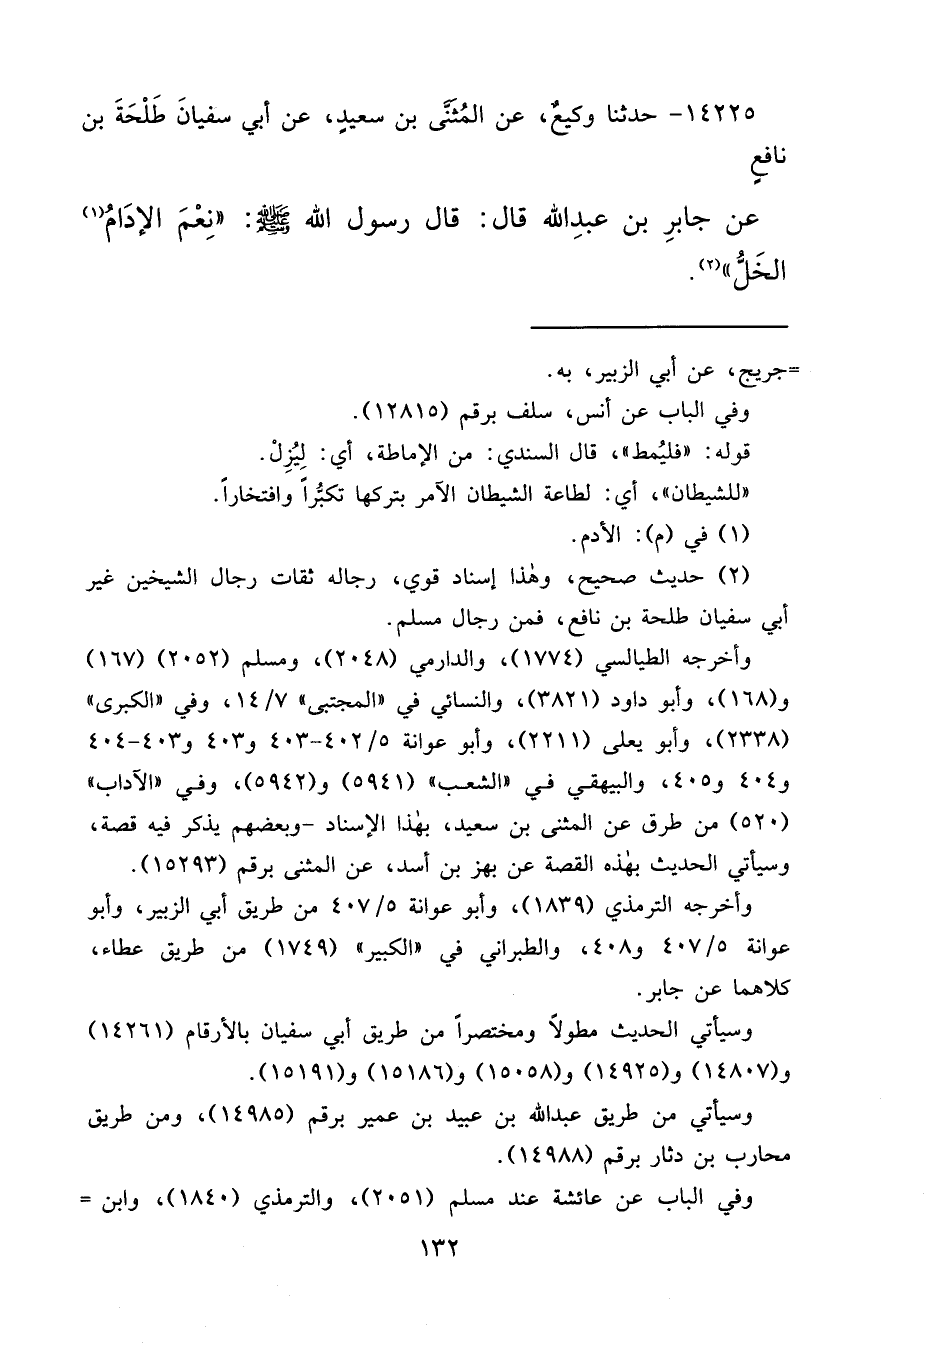 ١٤٢٢٥- حدثنا وكيعٌ، عن المُثَنَّى بن سعيدٍ، عن أبي سفيانَ طَلْحَةَ بن
نافعٍ
عن جابرِ بن عبدِالله قال: قال رسول الله ﷺ: «نِعْمَ الإدَامُ(١)
الخَلُّ»(٢).
=جريج، عن أبي الزبير، به.
وفي الباب عن أنس، سلف برقم (١٢٨١٥).
قوله: «فليُمط»، قال السندي: من الإماطة، أي: لِيُزِلْ.
«للشيطان»، أي: لطاعة الشيطان الآمر بتركها تكبُّراً وافتخاراً.
(١) في (م): الأدم.
(٢) حديث صحيح، وهٰذا إسناد قوي، رجاله ثقات رجال الشيخين غير
أبي سفيان طلحة بن نافع، فمن رجال مسلم.
وأخرجه الطيالسي (١٧٧٤)، والدارمي (٢٠٤٨)، ومسلم (٢٠٥٢) (١٦٧)
و(١٦٨)، وأبو داود (٣٨٢١)، والنسائي في «المجتبى» ١٤/٧، وفي «الكبرى»
(٢٣٣٨)، وأبو يعلى (٢٢١١)، وأبو عوانة ٤٠٢/٥-٤٠٣ و٤٠٣ و٤٠٣-٤٠٤
و٤٠٤ و٤٠٥، والبيهقي في «الشعب» (٥٩٤١) و(٥٩٤٢)، وفي «الآداب»
(٥٢٠) من طرق عن المثنى بن سعيد، بهٰذا الإسناد -وبعضهم يذكر فيه قصة،
وسيأتي الحديث بهٰذه القصة عن بهز بن أسد، عن المثنى برقم (١٥٢٩٣).
وأخرجه الترمذي (١٨٣٩)، وأبو عوانة ٤٠٧/٥ من طريق أبي الزبير، وأبو
عوانة ٤٠٧/٥ و٤٠٨، والطبراني في «الكبير» (١٧٤٩) من طريق عطاء،
كلاهما عن جابر.
وسيأتي الحديث مطولاً ومختصراً من طريق أبي سفيان بالأرقام (١٤٢٦١)
و(١٤٨٠٧) و(١٤٩٢٥) و(١٥٠٥٨) و(١٥١٨٦) و(١٥١٩١).
وسيأتي من طريق عبدالله بن عبيد بن عمير برقم (١٤٩٨٥)، ومن طريق
محارب بن دثار برقم (١٤٩٨٨).
وفي الباب عن عائشة عند مسلم (٢٠٥١)، والترمذي (١٨٤٠)، وابن =
١٣٢